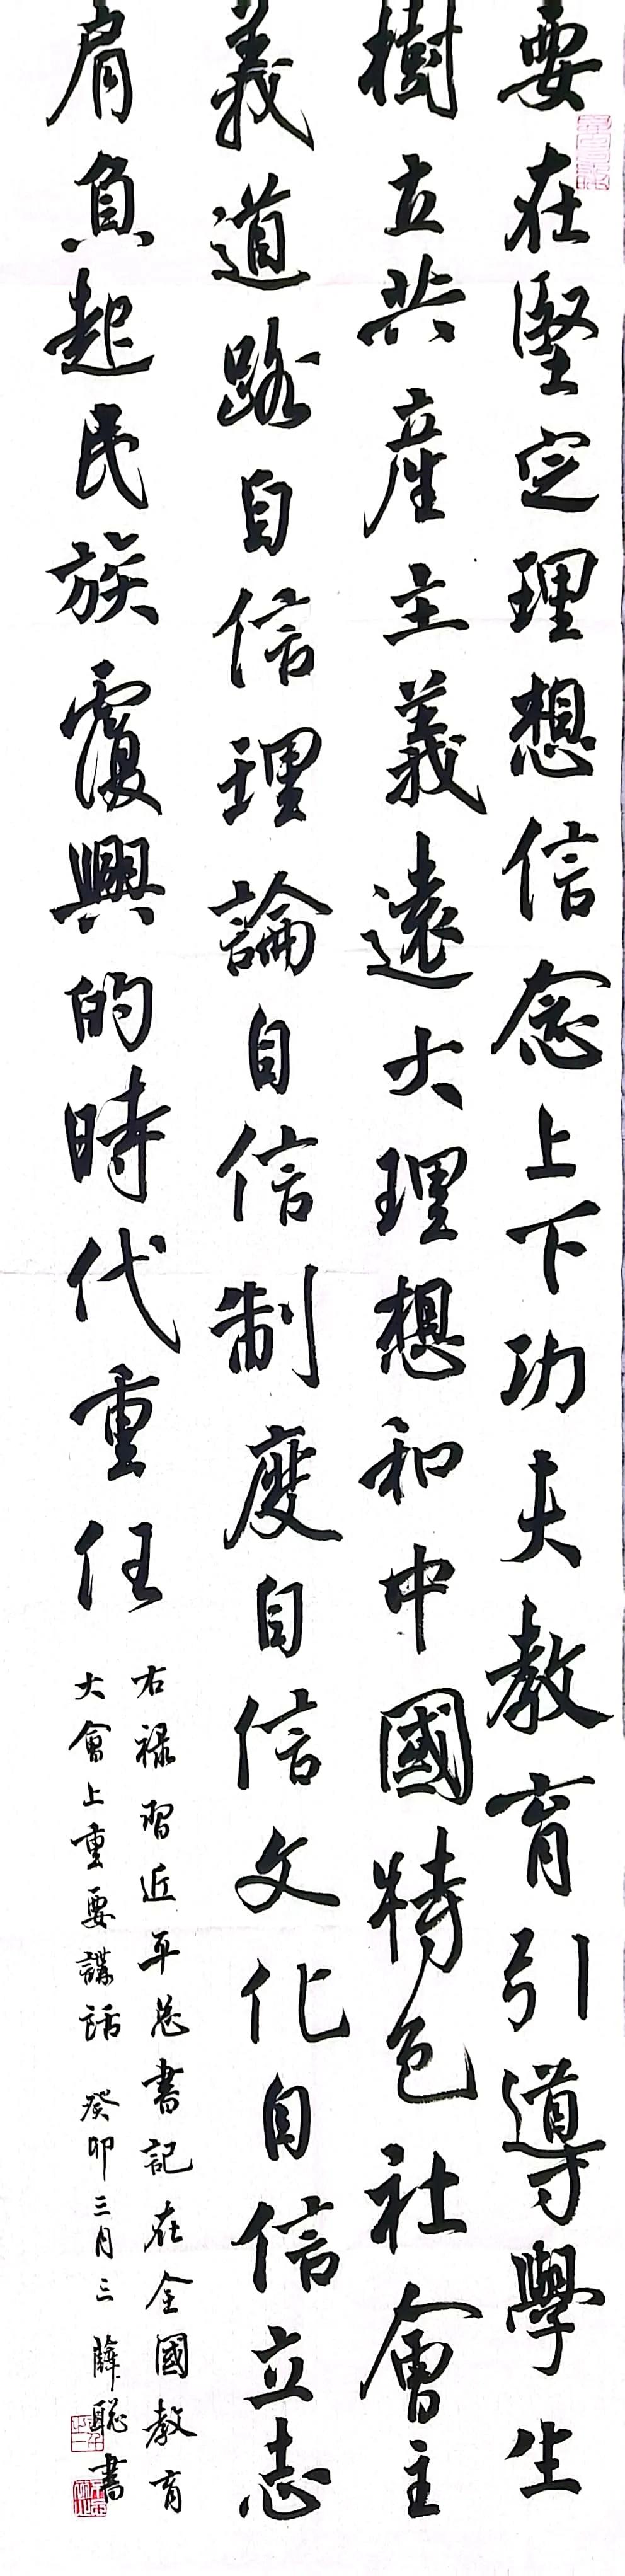 要在堅定理想信念上下功夫教育引導學生
樹立共產主義遠大理想和中國特色社會主
義道路自信理論自信制度自信文化自信立志
肩負起民族復興的時代重任
右祿習近平总書記在全國教育
大會上重要講話 癸卯三月三 薛聪書